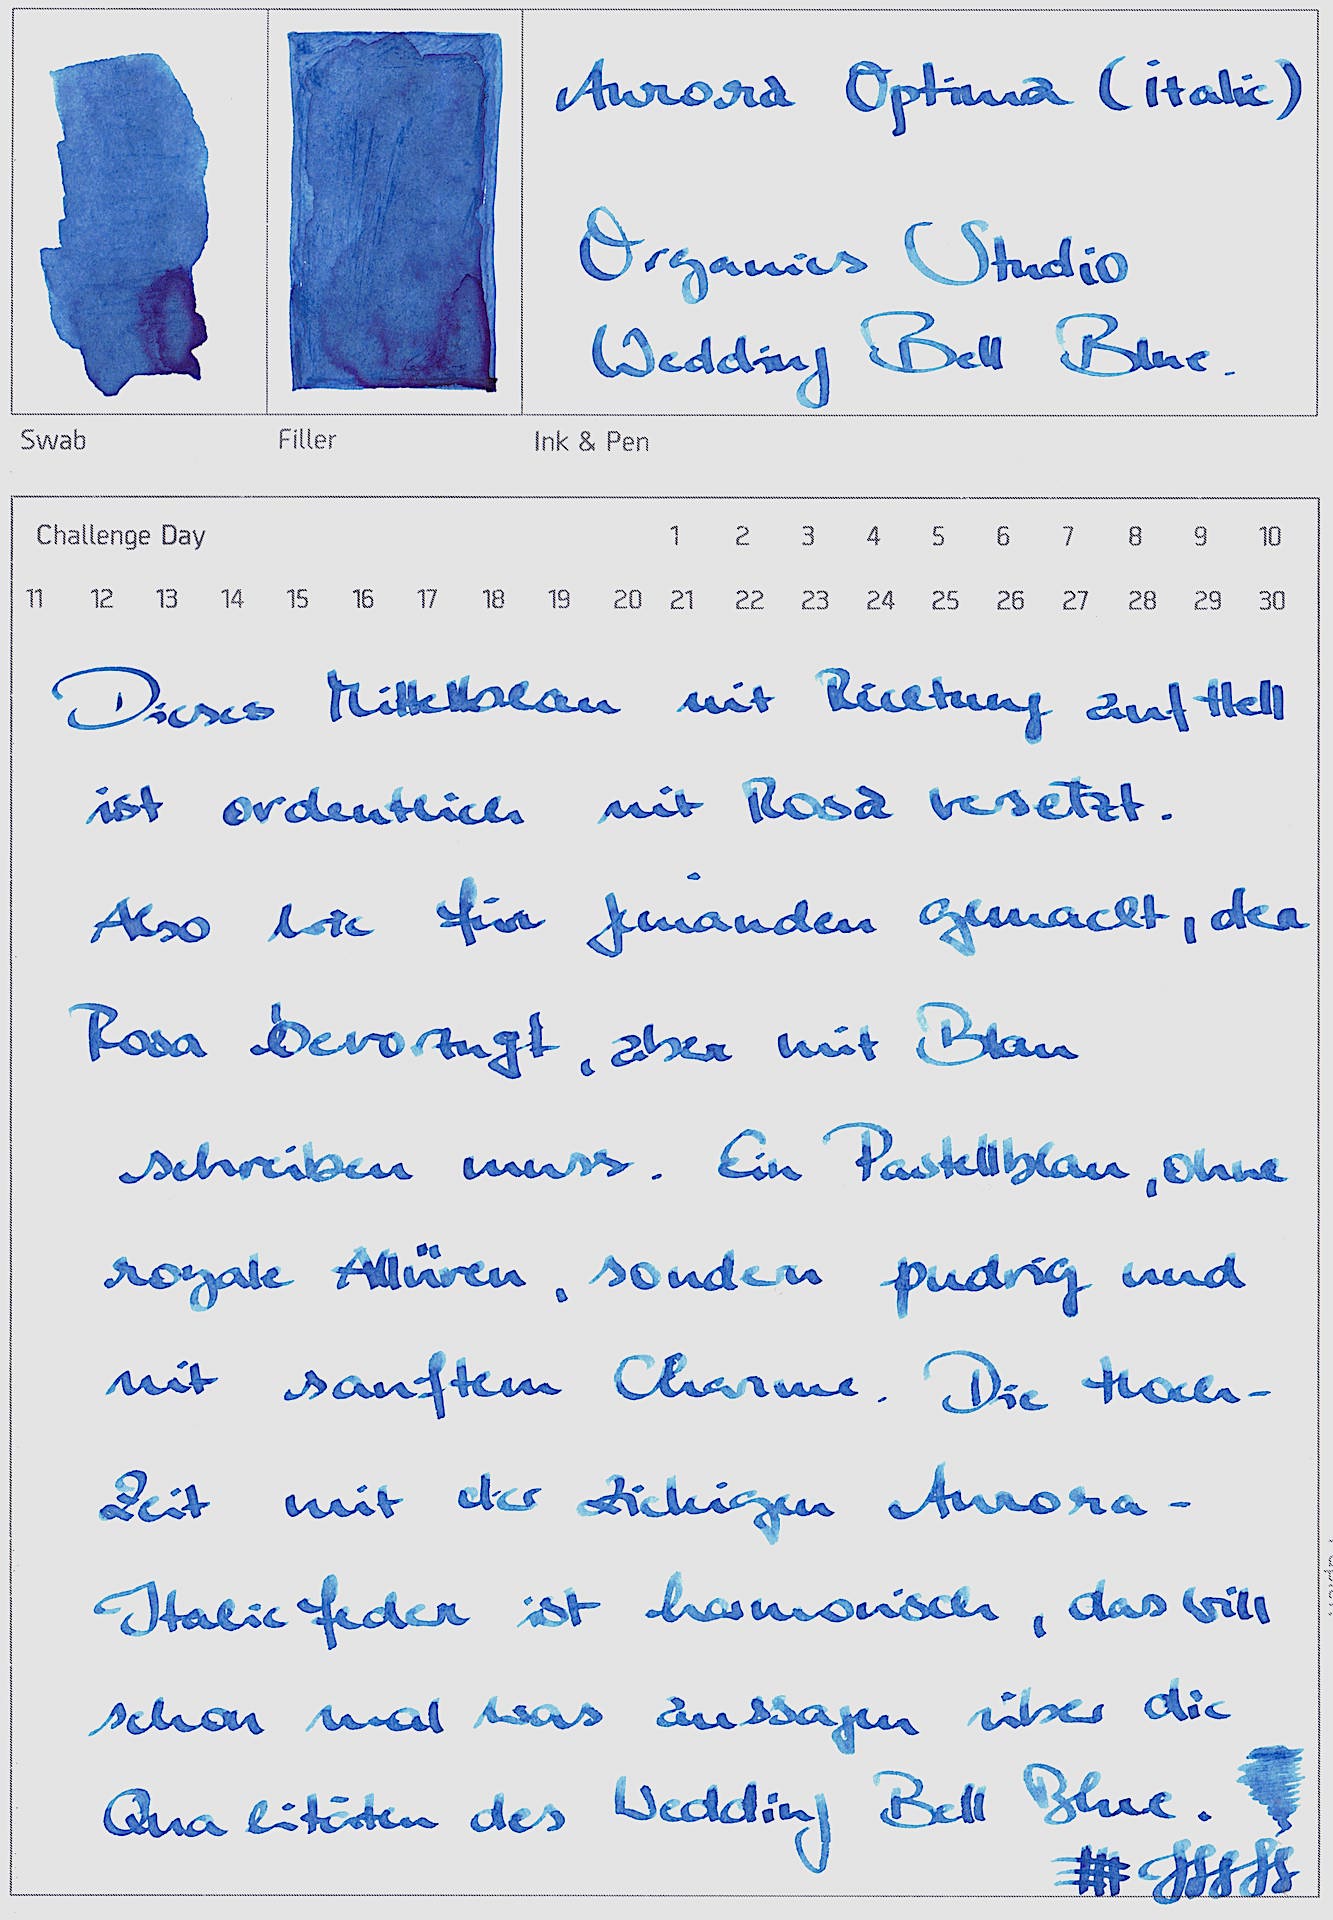 Aurora Optima (italic)
Organics Studio
Wedding Bell Blue.
Swab Filler Ink & Pen
Challenge Day 1 2 3 4 5 6 7 8 9 10
11 12 13 14 15 16 17 18 19 20 21 22 23 24 25 26 27 28 29 30
Dieses Mittelblau mit Richtung auf Hell
ist ordentlich mit Rosa versetzt.
Also wie für jemanden gemacht, der
Rosa bevorzugt, aber mit Blau
schreiben muss. Ein Pastellblau, ohne
royale Allüren, sondern pudrig und
mit sanftem Charme. Die Hoch-
Zeit mit der zickigen Aurora-
Italicfeder ist harmonisch, das will
schon mal was aussagen über die
Qualitäten des Wedding Bell Blue.